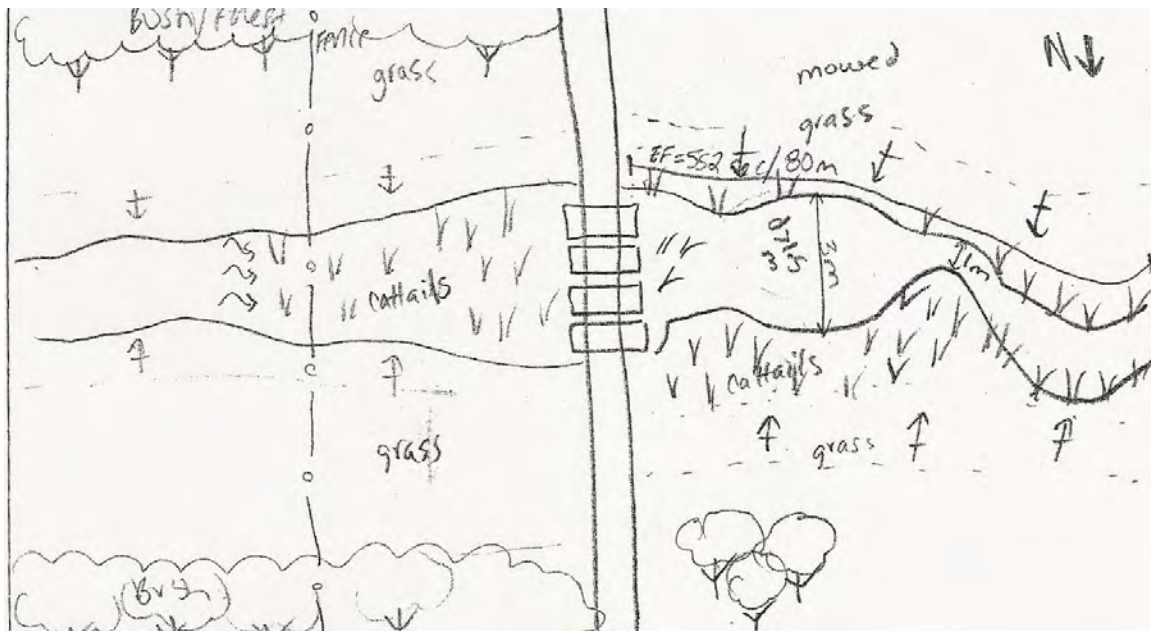 Bush/Forest
Fence
grass
mowed
grass
N
EF=552 sec/80m
3m
1m
cattails
cattails
grass
grass
Bush